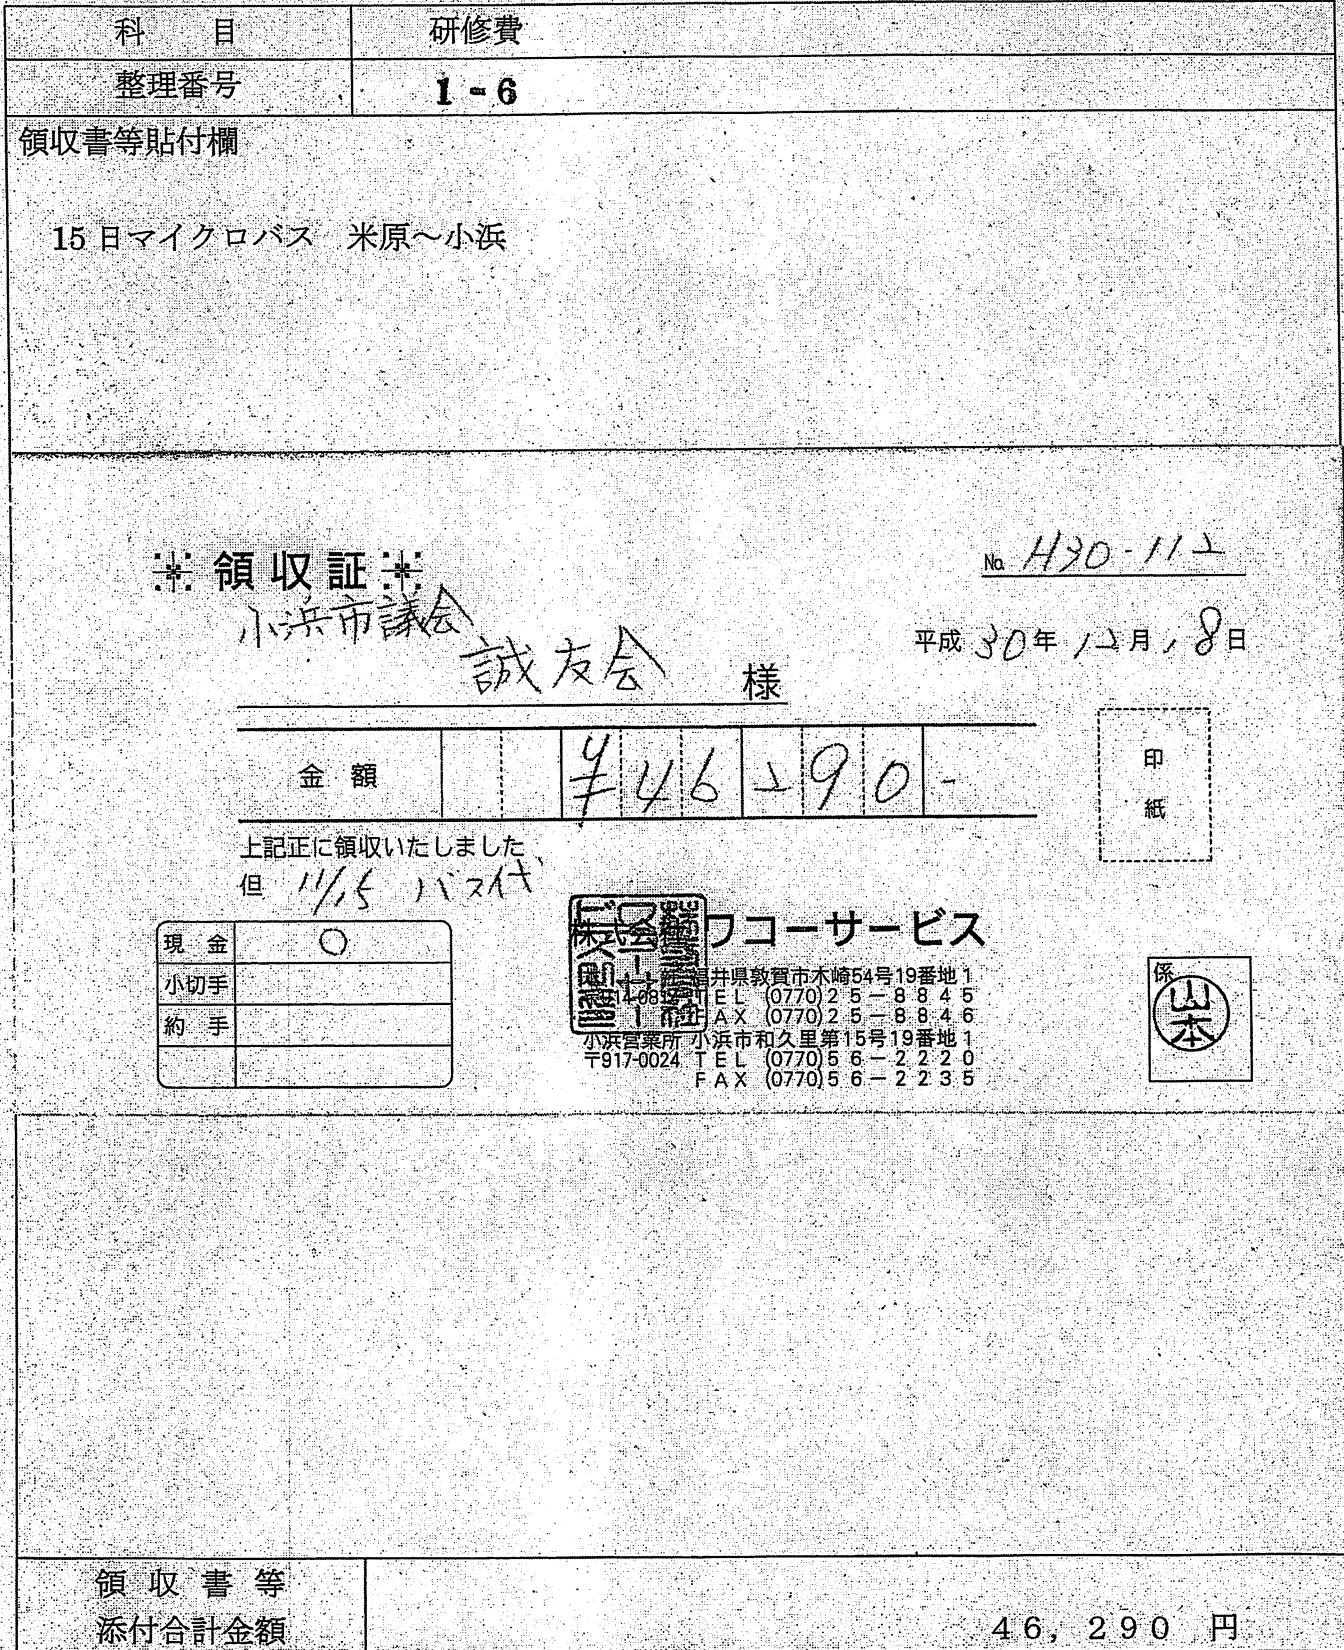 科　目　研修費
整理番号　1-6
領収書等貼付欄
15日マイクロバス　米原〜小浜
領収証
No. H30-112
小浜市議会
平成30年12月18日
誠友会　様
金額　¥46290-
印紙
上記正に領収いたしました
但 11/15 バス代
現金　○
小切手
約手
ワコーサービス
福井県敦賀市木崎54号19番地1
TEL (0770)25-8845
FAX (0770)25-8846
小浜営業所 小浜市和久里第15号19番地1
〒917-0024 TEL (0770)56-2220
FAX (0770)56-2235
係
山本
領収書等
添付合計金額　46,290 円